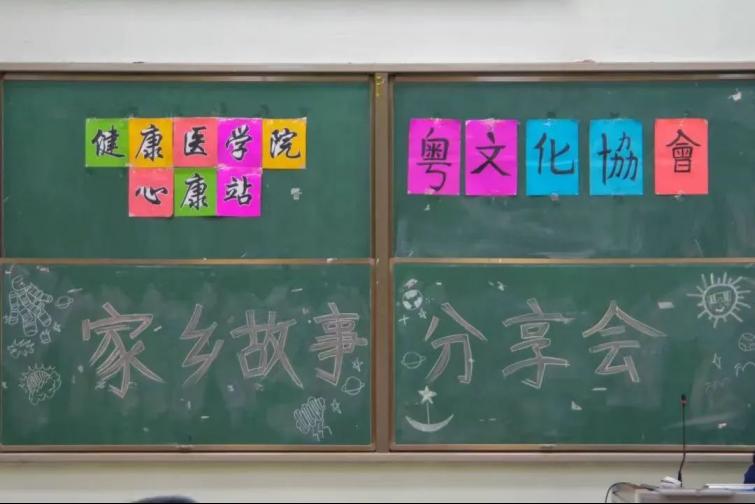 健康医学院
心康站
粤文化協會
家乡故事分享会